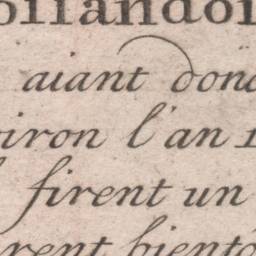 ollandoi
aiant donc
iron l'an 1
firent un
rent bientô